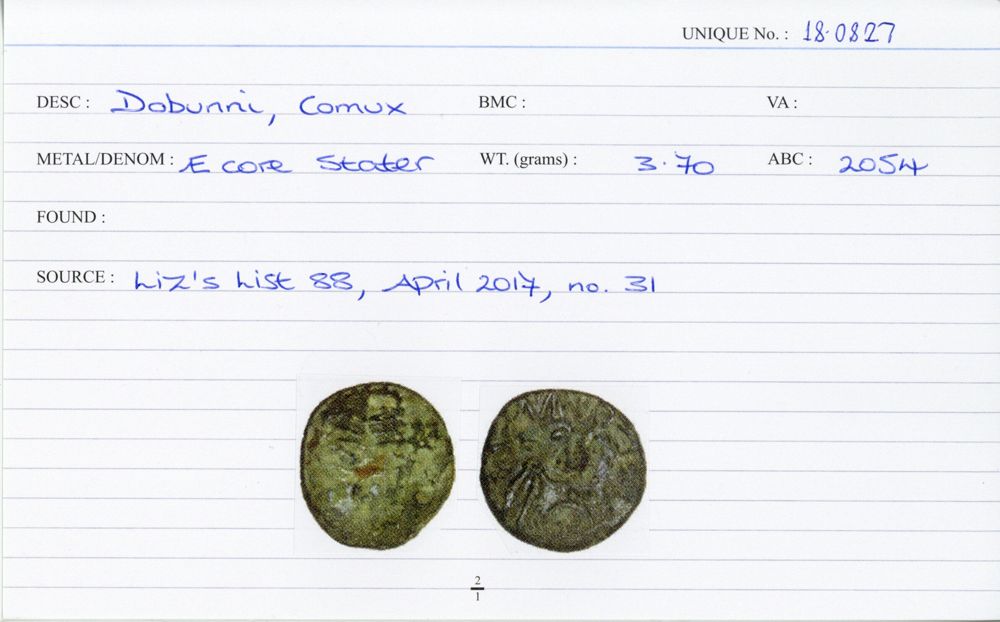 UNIQUE No. : 18.0827
DESC : Dobunni, Comux BMC : VA :
METAL/DENOM : Æ core Stater WT. (grams) : 3.70 ABC : 2054
FOUND :
SOURCE : Liz's List 88, April 2017, no. 31
2
1